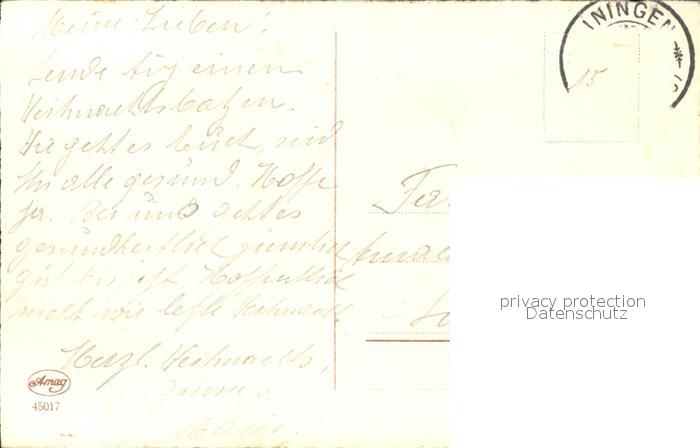 Meine Lieben!
Sende Dir einen
Weihnachtsbatzen.
Wie geht es Euch, seid
Ihr alle gesund. Hoffe
ja. Bei uns geht es
gesundheitlich ziemlich
gut bis jetzt. Hoffentlich
nicht wie letzte Weihnacht.
Herzl. Weihnachts
Marie.
Amag
45017
ININGEN
15
Fa
privacy protection
Datenschutz